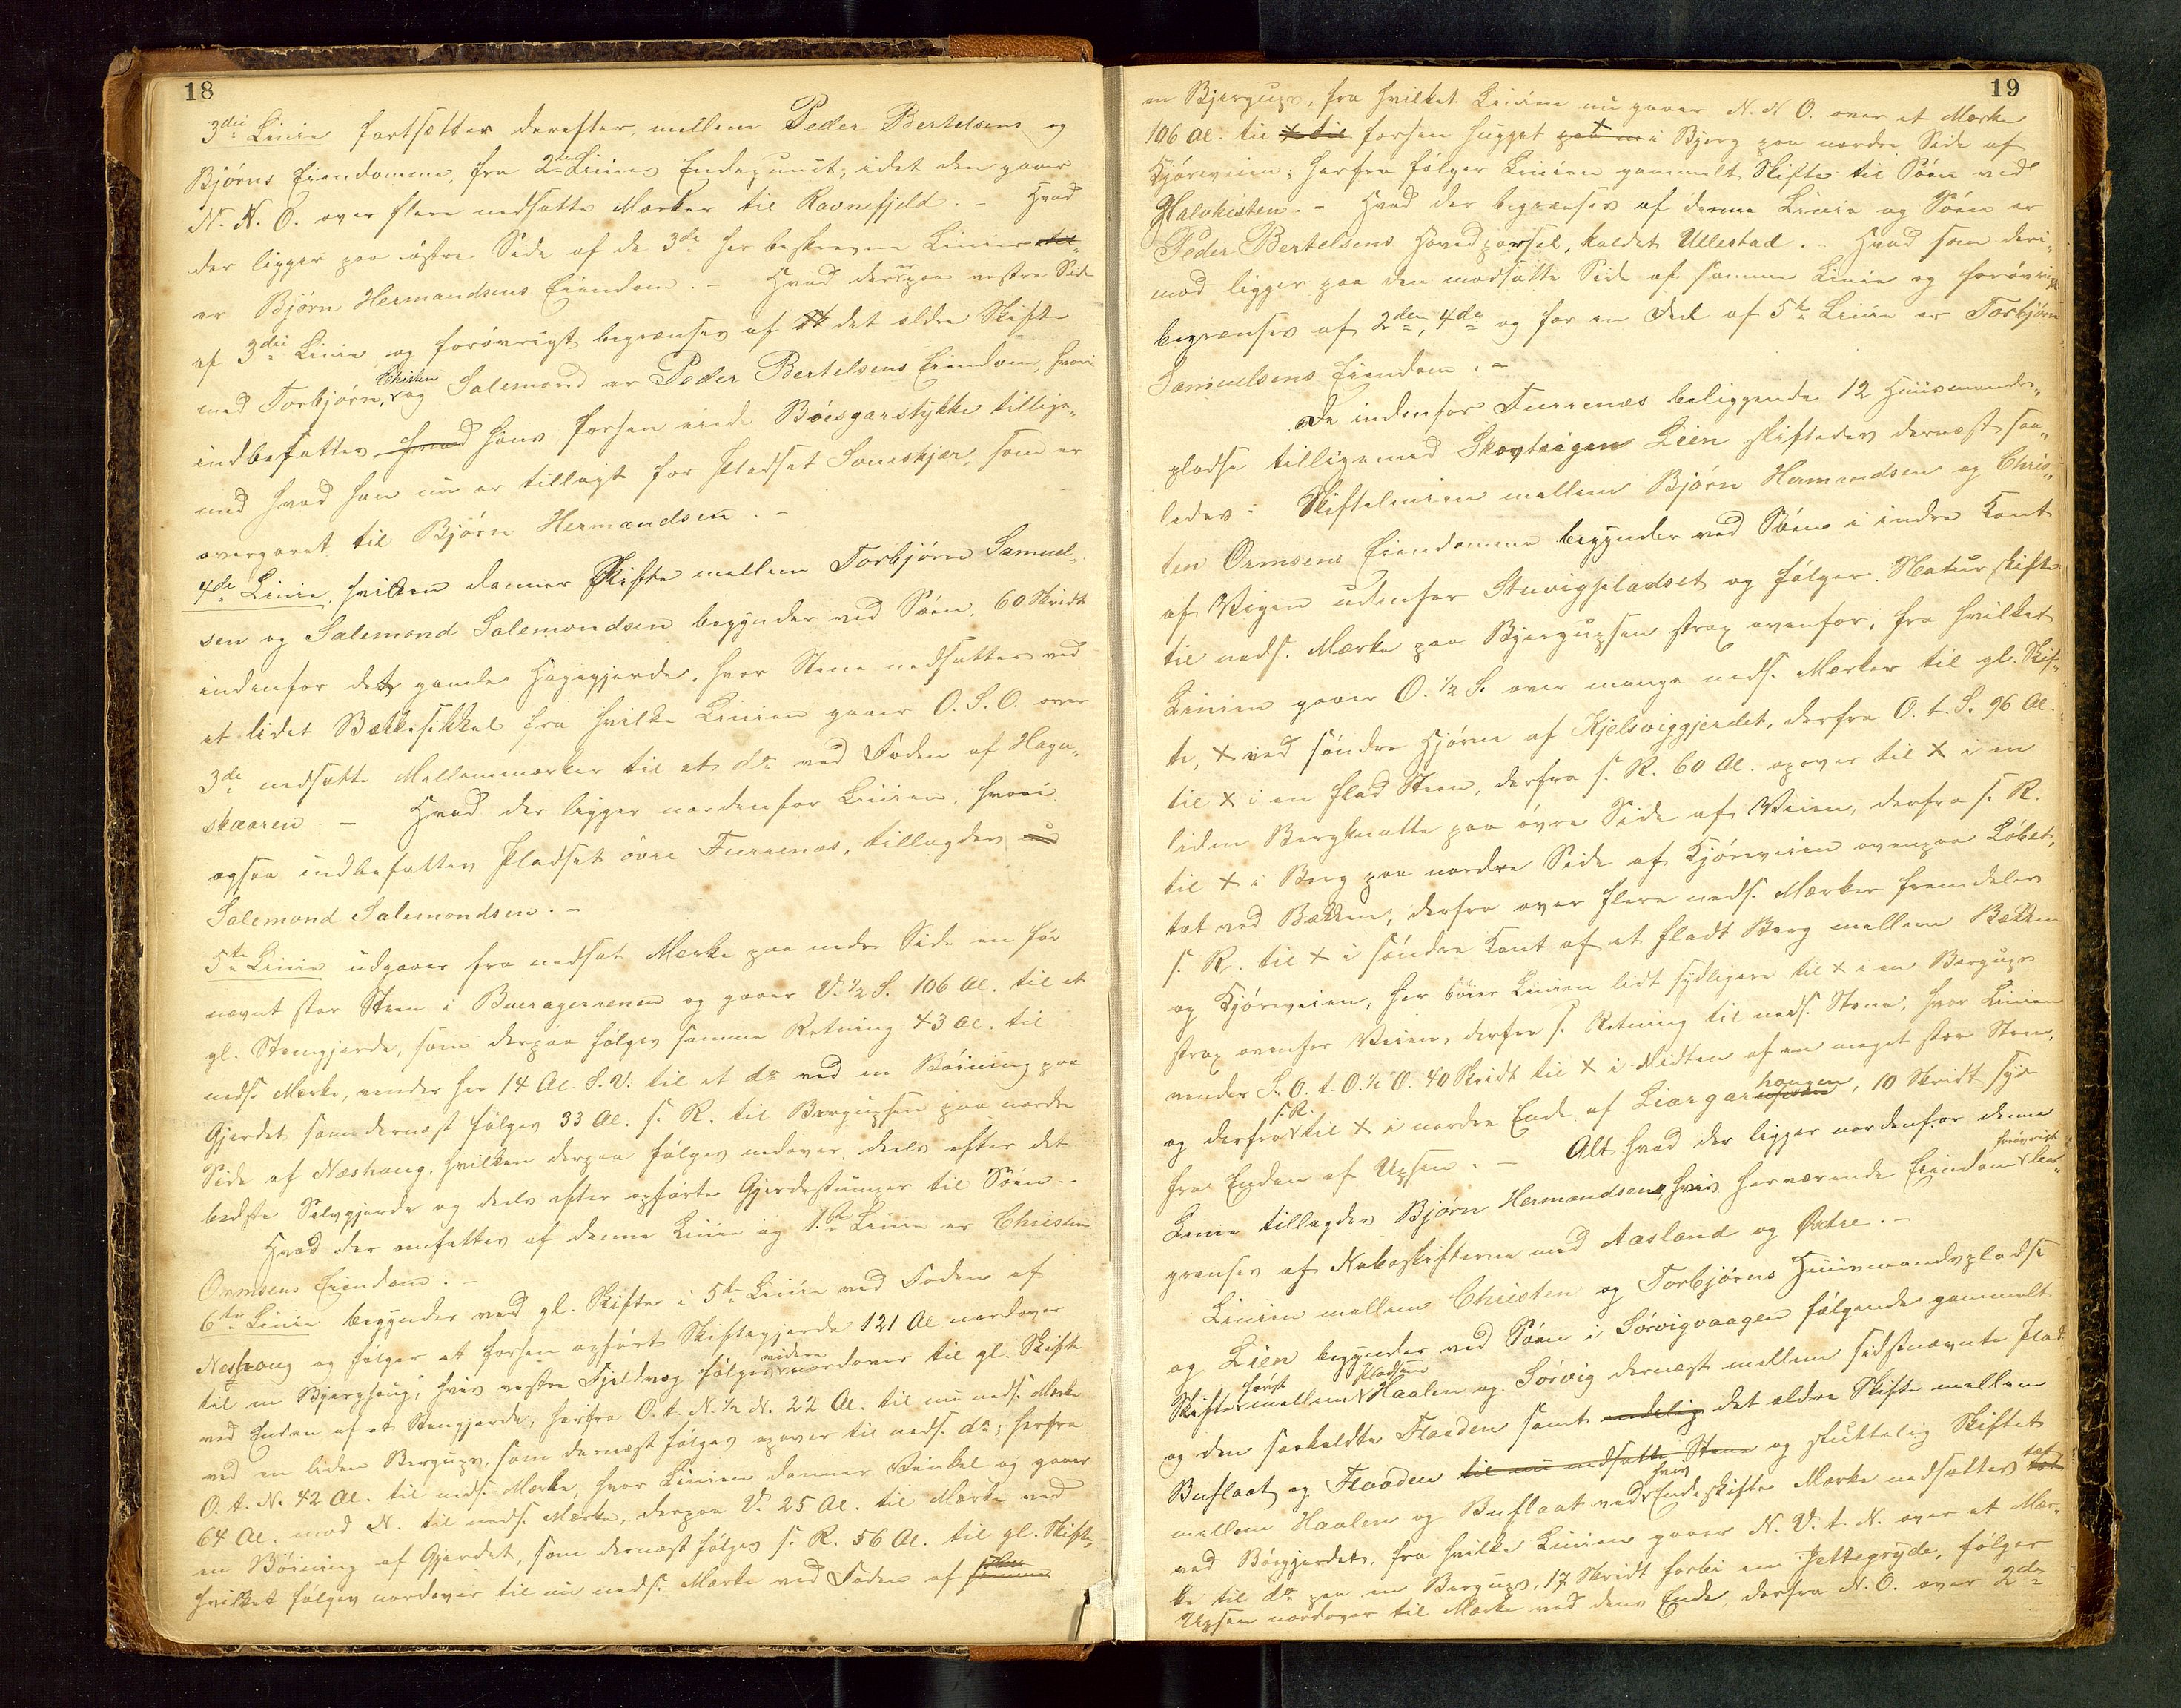 18
3die Linie fortsættes derefter mellem Peder Bertelsens og
Bjørns Eiendomme, fra 2den Linies Endepunct, idet den gaaer
N. N. O. over flere nedsatte Mærker til Ravnefjeld. – Hvad
der ligger paa østre Side af de 3de her beskrevne Linier til
er Bjørn Hermandsens Eiendom. – Hvad der er paa vestre Side
af 3die Linie og forøvrigt begrænses af det ældre Skifte
med Torbjørn, Christen og Salemond er Peder Bertelsens Eiendom, hvori
indbefattes hvad hans forhen eiede Bøesgarstykke tillige„
med hvad han nu er tillagt for Pladset Sameskjær, som er
overgaaet til Bjørn Hermandsen. –
4de Linie, hvilken danner Skifte mellem Torbjørn Samuel„
sen og Salemond Salemondsen begynder ved Søen, 60 Skridt
indenfor det gamle Hagegjerde, hvor Stene nedsattes ved
et lidet Bækkesikkel fra hvilke Linien gaaer O. S. O. over
3de nedsatte Mellemmærker til et do ved Foden af Haga„
skaaren – Hvad der ligger nordenfor Linien, hvori
ogsaa indbefattes Pladset øvre Furrenæs, tillagdes
Salemond Salemondsen. –
5te Linie udgaaer fra nedsat Mærke paa nedre Side en før
nævnt stor Steen i Bueragerrenen og gaaer V. ½ S. 106 Al. til et
gl. Steengjerde, som derpaa følges samme Retning 43 Al. til
neds. Mærke, vender her 14 Al. S. V. til et do ved en Bøining paa
Gjerdet som dernæst følges 33 Al. s. R. til Bergupsen paa nordre
Side af Næshaug, hvilken derpaa følges nedover, deels efter det
bedste Selvgjerde og deels efter opførte Gjerdestumper til Søen. –
Hvad der omfattes af denne Linie og 1ste Linie er Christen
Ormsens Eiendom. –
6te Linie begynder ved gl. Skifte i 5te Linie ved Foden af
Neshaug og følger et forhen opført Skiftegjerde 121 Al nordover
til en Bjerghaug, hvis vestre Fjeldvæg følges videre nordover til gl. Skifte
ved Enden af et Steengjerde, herfra O. t. N. ½ N. 22 Al. til nu neds. Mærke
ved en liden Bergups, som dernæst følges opover til neds. do; herfra
O. t. N. 42 Al. til neds. Mærke, hvor Linien danner Vinkel og gaaer
64 Al. mod N. til neds. Mærke, derpaa V. 25 Al. til Mærke ved
en Bøining af Gjerdet, som dernæst følges s. R. 56 Al. til gl. Skifte,
hvilket følges nordover til nu neds. Mærke ved Foden af samme
19
en Bjergups, fra hvilket Linien nu gaaer N. N O. over et Mærke
106 Al. til x til forhen hugget i Bjerg paa nordre Side af
Kjøreveien; herfra følger Linien gammelt Skifte til Søen ved
Halvkisten. – Hvad der begrænses af denne Linie og Søen er
Peder Bertelsens Hovedparsel, kaldet Ullestad. – Hvad som deri„
mod ligger paa den modsatte Side af samme Linie og forøvrigt
begrænses af 2den, 4de og for en Deel af 5te Linie er Torbjørn
Samuelsens Eiendom. –
De indenfor Furrenæs beliggende 12 Huusmands„
pladse tilligemed Skovteigen Lien skiftedes dernæst saa„
ledes: Skiftelinien mellem Bjørn Hermandsen og Chris„
ten Ormsens Eiendomme begynder ved Søen i indre Kant
af Vigen udenfor Stuvigpladset og følger Naturskifte
til neds. Mærke paa Bjergupsen strax ovenfor, fra hvilket
Linien gaaer O. ½ S. over mange neds. Mærker til gl. Skif„
te, x ved søndre Hjørne af Kjelsviggjerdet, derfra O. t. S. 96 Al.
til x i en flad Steen, derfra s. R. 60 Al. opover til x i en
liden Bergknatte paa øvre Side af Veien, derfra s. R.
til x i Berg paa nordre Side af Kjøreveien ovenpaa Løbet,
tæt ved Bækken, derfra over flere neds. Mærker fremdeles
s. R. til x i søndre Kant af et fladt Berg mellem Bækken
og Kjøreveien, her bøier Linien lidt sydligere til x i en Bergups
strax ovenfor Veien, derfra s. Retning til neds. Stene, hvor Linien
vender S. O. t. O. ½ O. 40 Skridt til x i Midten af en meget stor Steen,
og derfra s. R. til x i nordre Ende af Liargarhaugen, 10 Skridt syd
fra Enden af Upsen. – Alt hvad der ligger nordenfor denne
Linie tillagdes Bjørn Hermandsen, hvis herværende Eiendom forøvrigt be„
grænses af Naboskifterne med Aasland og Østre. –
Linien mellem Christen og Torbjørns Huusmandspladse
og Lien begynder ved Søen i Sørvigvaagen følgende gammelt
Skifte først mellem Pladsene Haalen og Sørvig dernæst mellem sidstnævnte Plads
og den saakaldte Flaaden samt endelig det ældre Skifte mellem
Buflaat og Flaaden til nu nedsatte Stene og sluttelig Skiftet
mellem Haalen og Buflaat ved hvis Endeskifte Mærke nedsattes tæt
ved Bøegjerdet, fra hvilke Linien gaaer N. V. t. N. over et Mær„
ke til do paa en Bergups, 17 Skridt forbi en Jettegryde, følger
Upsen nordover til Mærke ved dens Ende, derfra N. O. over 2de